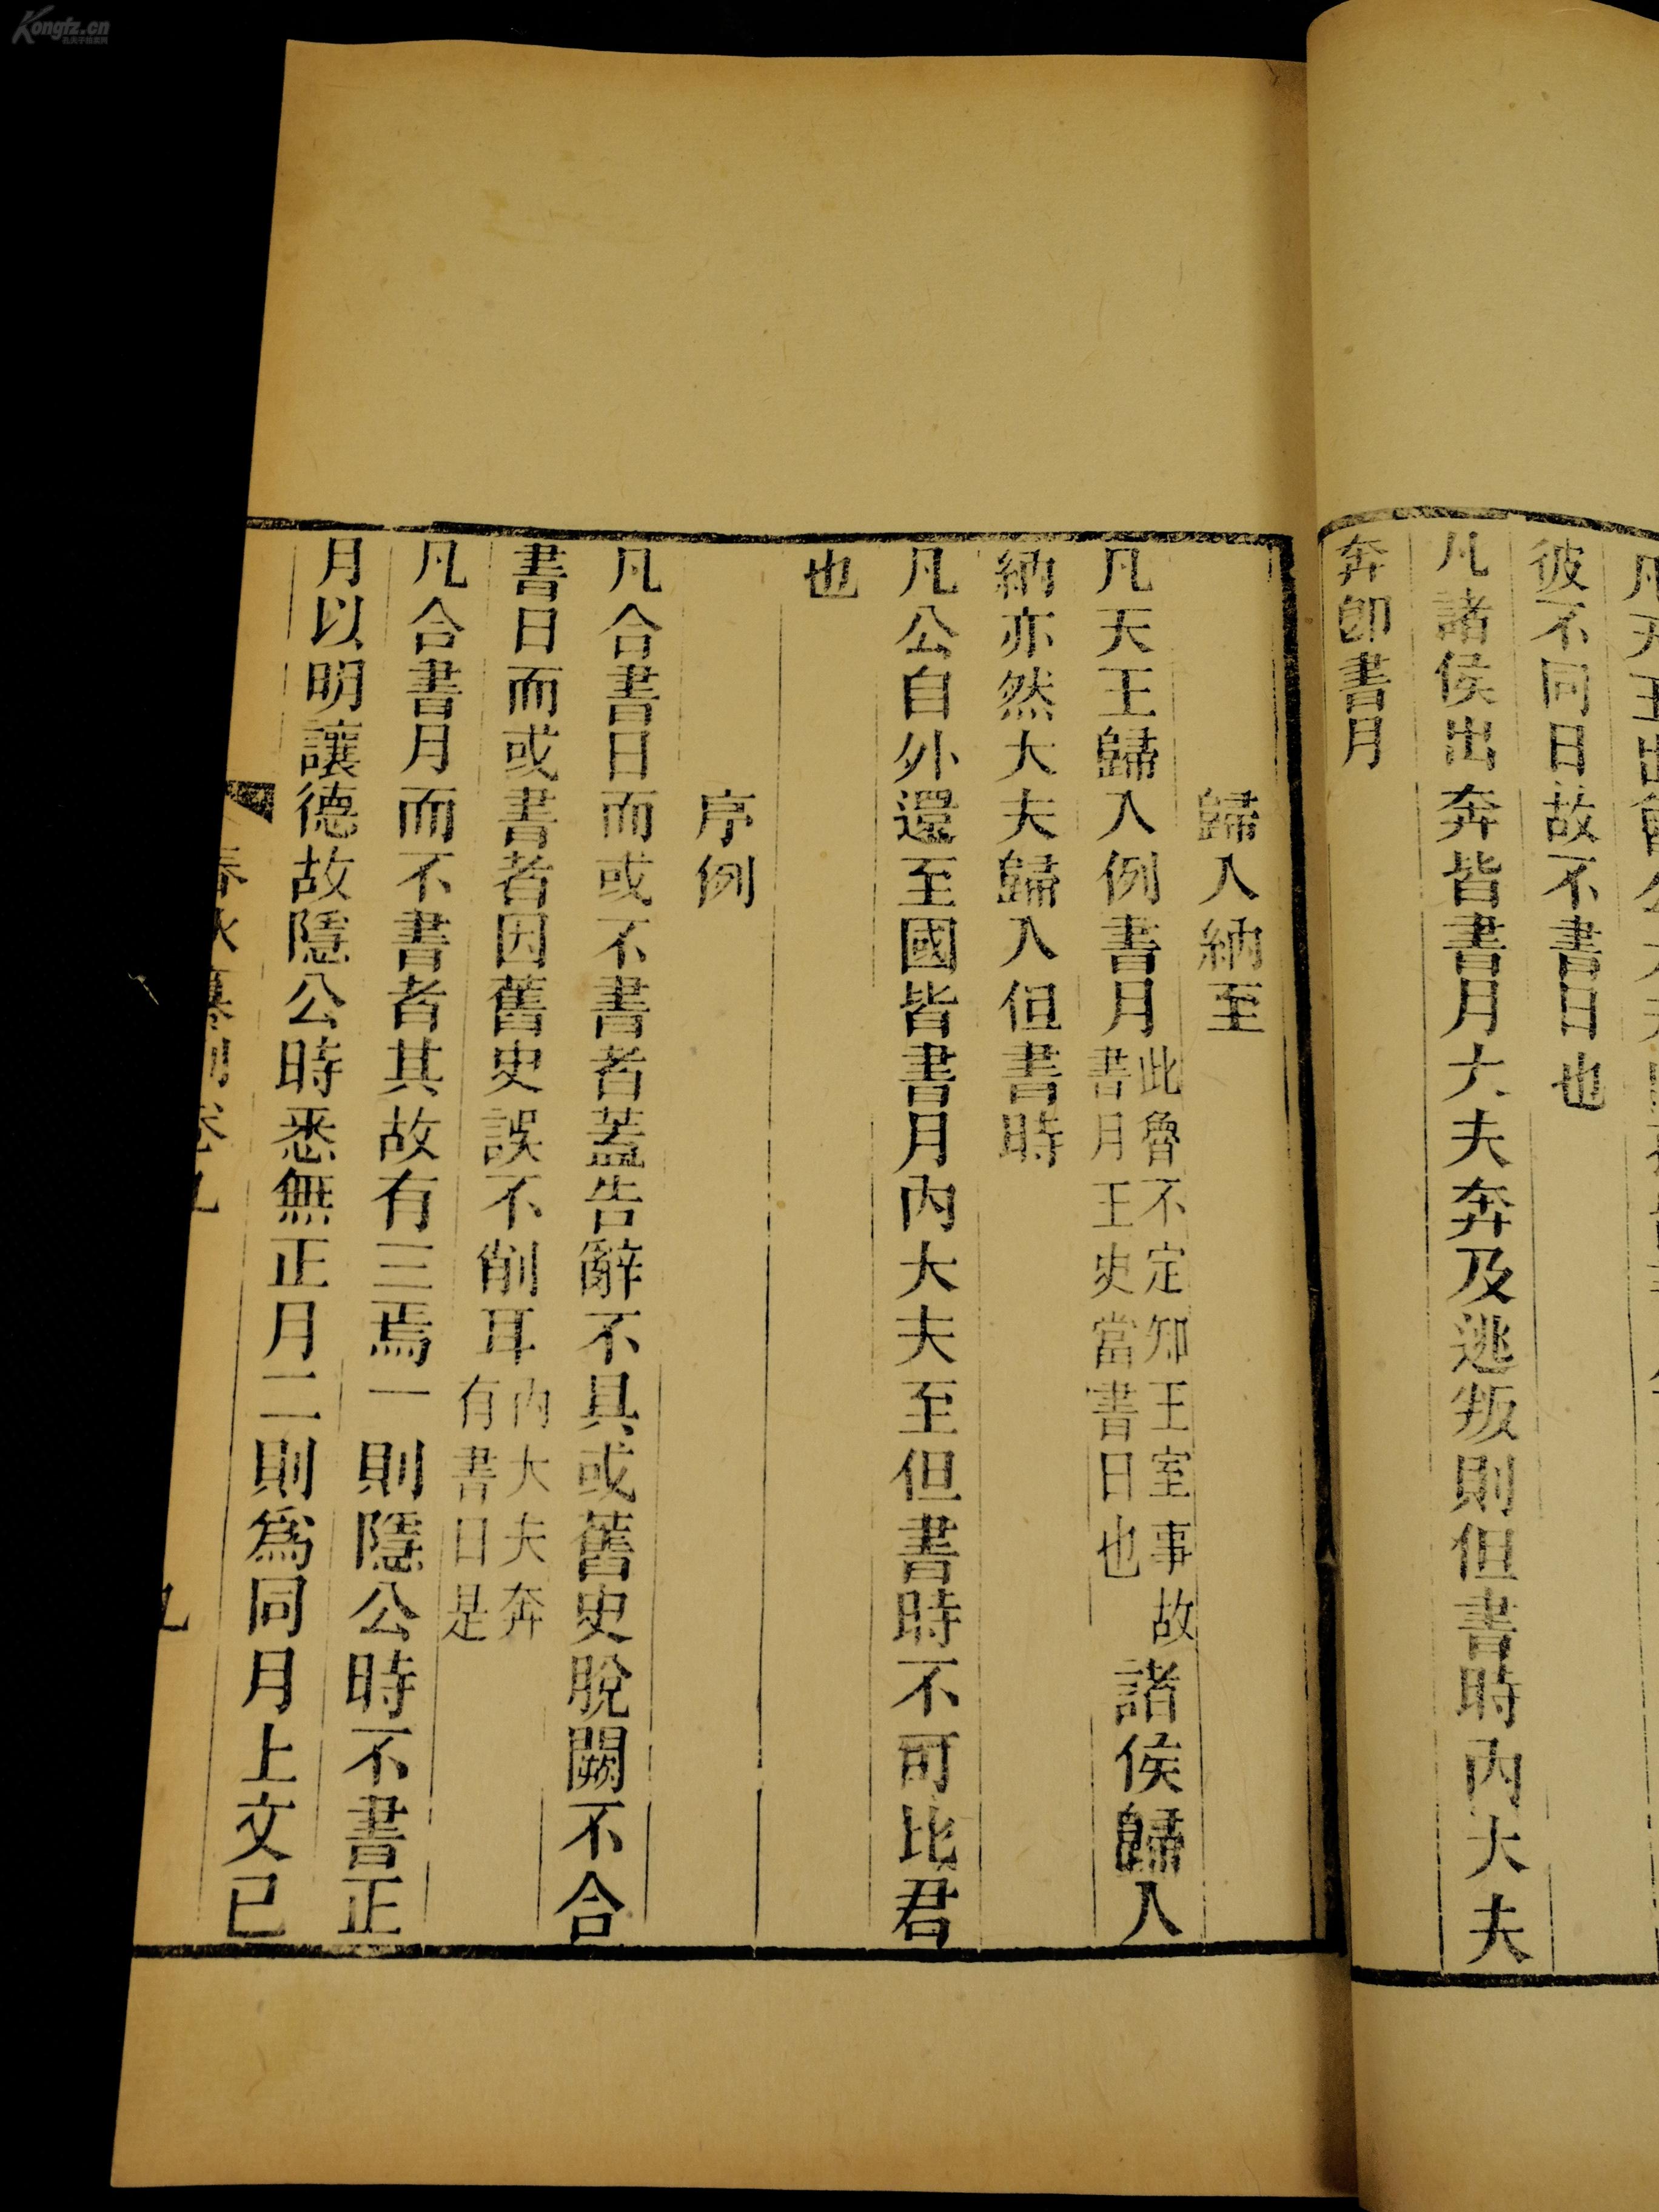 彼不同日故不書日也
凡諸侯出奔皆書月大夫奔及逃叛則但書時內大夫
奔卽書月
歸入納至
凡天王歸入例書月此魯不定知王室事故書月王史當書日也諸侯歸入
納亦然大夫歸入但書時
凡公自外還至國皆書月內大夫至但書時不可比君
也
序例
凡合書日而或不書者蓋告辭不具或舊史脫闕不合
書日而或書者因舊史誤不削耳內大夫奔有書日是
凡合書月而不書者其故有三焉一則隱公時不書正
月以明讓德故隱公時悉無正月二則爲同月上文已
Kongfz.cn